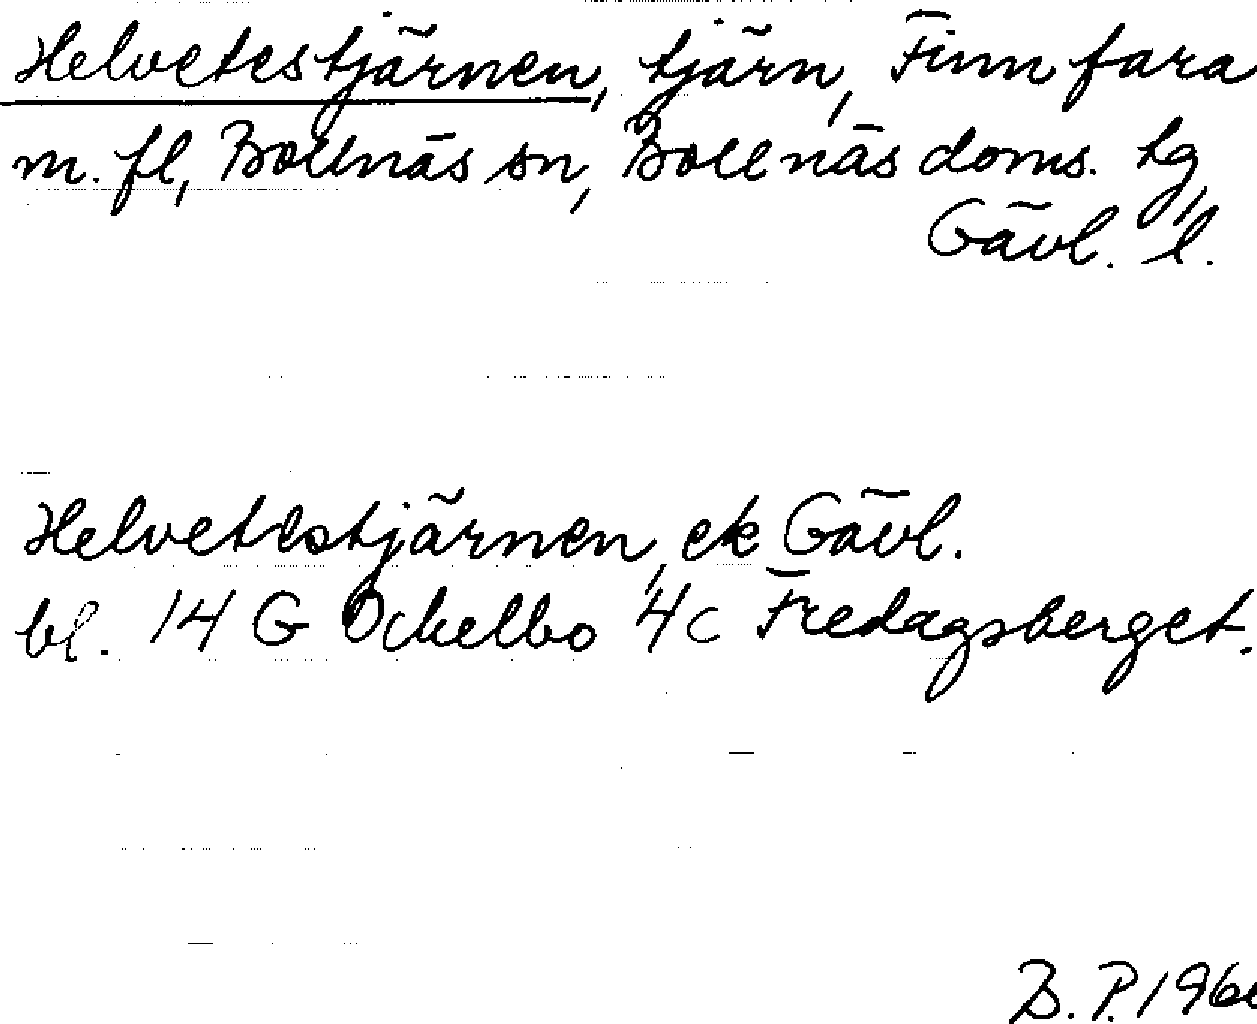 Helvetestjärnen, tjärn, Finnfara
m. fl, Bollnäs sn, Bollnäs doms. tg,
Gävl. l.
Helvetestjärnen, ek Gävl.
bl. 14 G Ockelbo 4c Fredagsberget.
B. P. 196